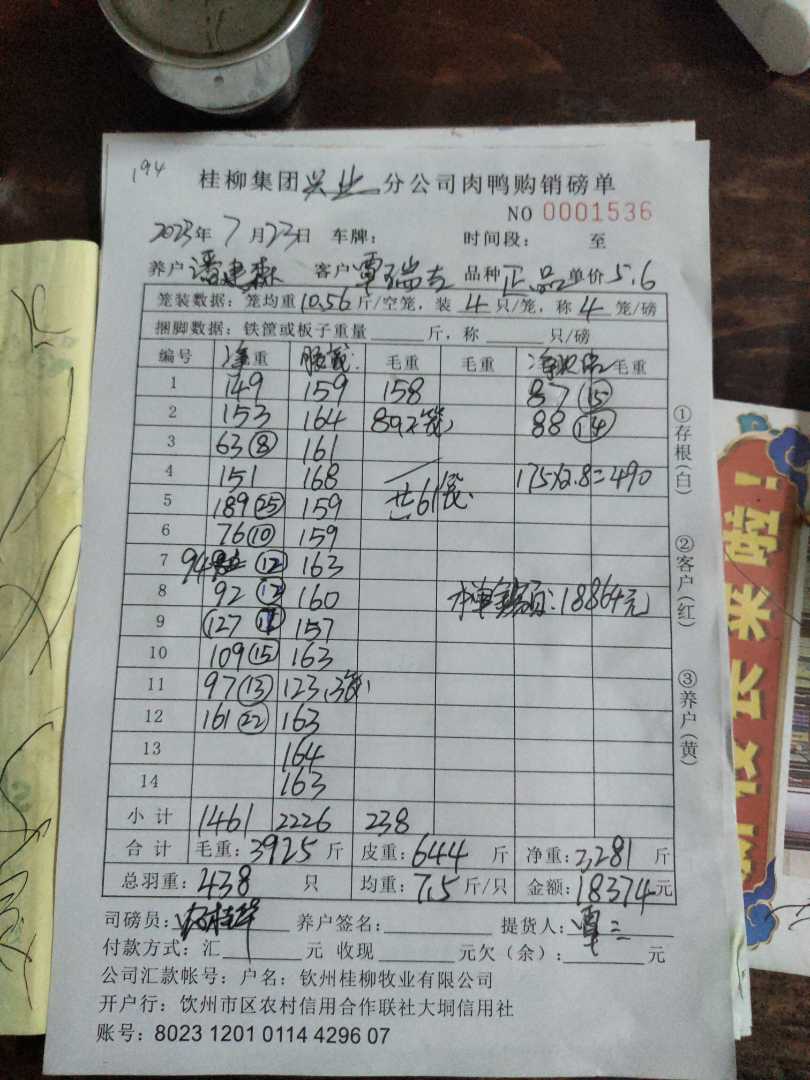 194
桂柳集团兴业分公司肉鸭购销磅单
NO 0001536
2023年7月23日 车牌: 时间段: 至
养户潘建森 客户覃瑞吉 品种正品单价5.6
笼装数据: 笼均重10.56斤/空笼, 装4只/笼, 称4笼/磅
捆脚数据: 铁筐或板子重量 斤, 称 只/磅
编号 净重 毛重 毛重 毛重
1 149 159 158 87 ⑮
2 153 164 89(2笼) 88 ⑭
3 63⑧ 161
4 151 168 175×2.8=490
5 189㉕ 159 共61笼
6 76⑩ 159
7 94 ⑫ 163
8 92 ⑫ 160 本单金额为:18864元
9 127 157
10 109⑮ 163
11 97⑬ 123(3笼)
12 161㉒ 163
13 164
14 163
小计 1461 2226 238
合计 毛重:3925斤 皮重:644斤 净重:3281斤
总羽重:438只 均重:7.5斤/只 金额:18374元
司磅员: 养户签名: 提货人:覃二
付款方式:汇 元 收现 元欠(余): 元
公司汇款帐号:户名:钦州桂柳牧业有限公司
开户行:饮州市区农村信用合作联社大垌信用社
账号:8023 1201 0114 4296 07
①存根(白)
②客户(红)
③养户(黄)
来啦!